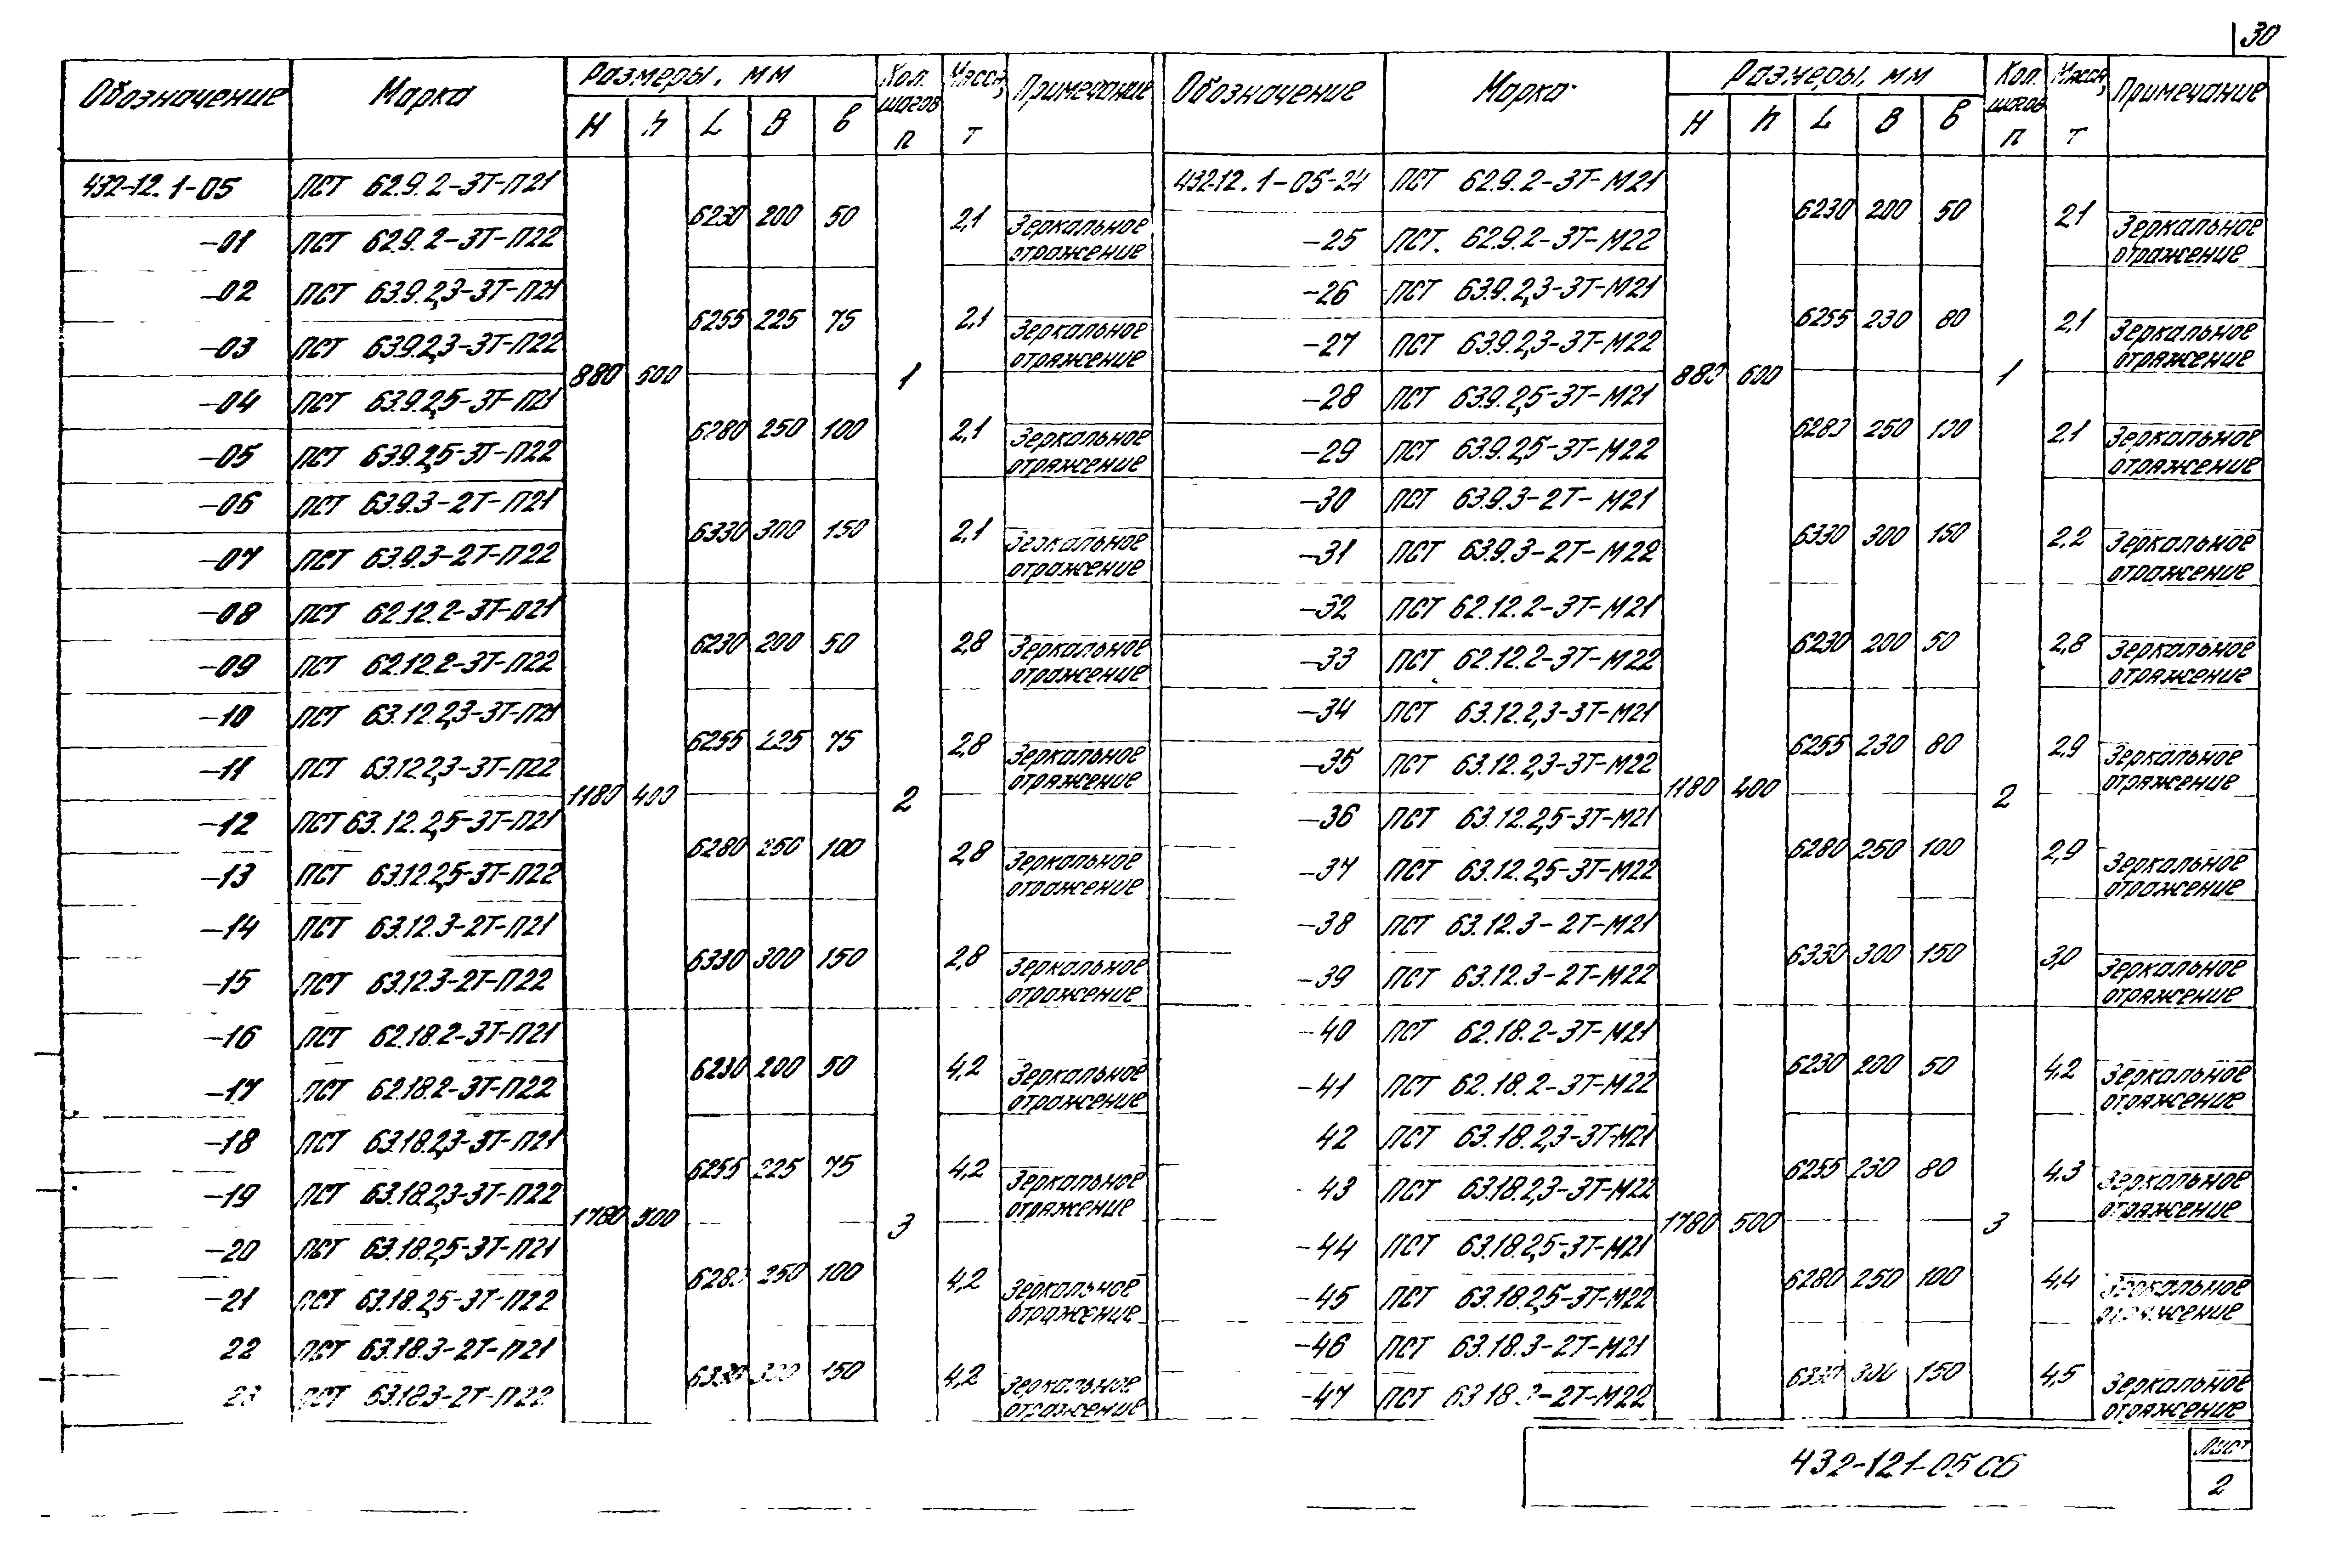 30
Обозначение Марка Размеры, мм Кол. шагов п Масса, т Примечание Обозначение Марка Размеры, мм Кол. шагов п Масса, т Примечание
H h L B б H h L B б
432-12.1-05 ПСТ 62.9.2-3Т-П21 432-12.1-05-24 ПСТ 62.9.2-3Т-М21
6230 200 50 2,1 6230 200 50 2,1
-01 ПСТ 62.9.2-3Т-П22 Зеркальное отражение -25 ПСТ. 62.9.2-3Т-М22 Зеркальное отражение
-02 ПСТ 63.9.2,3-3Т-П21 -26 ПСТ 63.9.2,3-3Т-М21
6255 225 75 2,1 6255 230 80 2,1
-03 ПСТ 63.9.2,3-3Т-П22 Зеркальное отражение -27 ПСТ 63.9.2,3-3Т-М22 Зеркальное отражение
880 600 1 880 600 1
-04 ПСТ 63.9.2,5-3Т-П21 -28 ПСТ 63.9.2,5-3Т-М21
6280 250 100 2,1 6280 250 100 2,1
-05 ПСТ 63.9.2,5-3Т-П22 Зеркальное отражение -29 ПСТ 63.9.2,5-3Т-М22 Зеркальное отражение
-06 ПСТ 63.9.3-2Т-П21 -30 ПСТ 63.9.3-2Т-М21
6330 300 150 2,1 6330 300 150 2,2
-07 ПСТ 63.9.3-2Т-П22 Зеркальное отражение -31 ПСТ 63.9.3-2Т-М22 Зеркальное отражение
-08 ПСТ 62.12.2-3Т-П21 -32 ПСТ 62.12.2-3Т-М21
6230 200 50 2,8 6230 200 50 2,8
-09 ПСТ 62.12.2-3Т-П22 Зеркальное отражение -33 ПСТ 62.12.2-3Т-М22 Зеркальное отражение
-10 ПСТ 63.12.2,3-3Т-П21 -34 ПСТ 63.12.2,3-3Т-М21
6255 225 75 2,8 6255 230 80 2,9
-11 ПСТ 63.12.2,3-3Т-П22 Зеркальное отражение -35 ПСТ 63.12.2,3-3Т-М22 Зеркальное отражение
1180 400 2 1180 400 2
-12 ПСТ 63.12.2,5-3Т-П21 -36 ПСТ 63.12.2,5-3Т-М21
6280 250 100 2,8 6280 250 100 2,9
-13 ПСТ 63.12.2,5-3Т-П22 Зеркальное отражение -37 ПСТ 63.12.2,5-3Т-М22 Зеркальное отражение
-14 ПСТ 63.12.3-2Т-П21 -38 ПСТ 63.12.3-2Т-М21
6330 300 150 2,8 6330 300 150 3,0
-15 ПСТ 63.12.3-2Т-П22 Зеркальное отражение -39 ПСТ 63.12.3-2Т-М22 Зеркальное отражение
-16 ПСТ 62.18.2-3Т-П21 -40 ПСТ 62.18.2-3Т-М21
6230 200 50 4,2 6230 200 50 4,2
-17 ПСТ 62.18.2-3Т-П22 Зеркальное отражение -41 ПСТ 62.18.2-3Т-М22 Зеркальное отражение
-18 ПСТ 63.18.2,3-3Т-П21 42 ПСТ 63.18.2,3-3Т-М21
6255 225 75 4,2 6255 230 80 4,3
-19 ПСТ 63.18.2,3-3Т-П22 Зеркальное отражение -43 ПСТ 63.18.2,3-3Т-М22 Зеркальное отражение
1780 500 3 1780 500 3
-20 ПСТ 63.18.2,5-3Т-П21 -44 ПСТ 63.18.2,5-3Т-М21
6280 250 100 4,2 6280 250 100 4,4
-21 ПСТ 63.18.2,5-3Т-П22 Зеркальное отражение -45 ПСТ 63.18.2,5-3Т-М22 Зеркальное отражение
22 ПСТ 63.18.3-2Т-П21 -46 ПСТ 63.18.3-2Т-М21
6330 300 150 4,2 6330 300 150 4,5
23 ПСТ 63.18.3-2Т-П22 Зеркальное отражение -47 ПСТ 63.18.3-2Т-М22 Зеркальное отражение
432-12.1-05 СБ
Лист
2